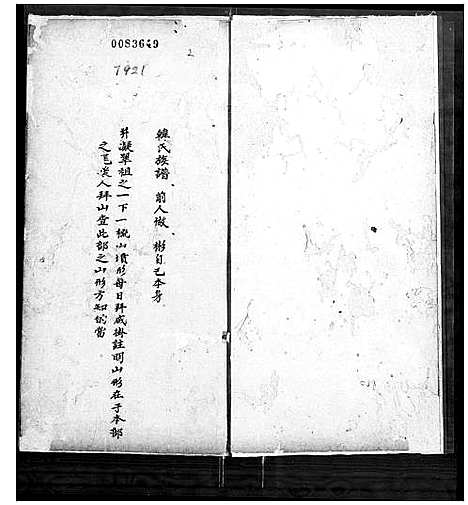 0083649
2
7921
氏族譜 前人做 彬自己本身
并凝翠祖之一下一概山墳形每日拜咸掛註明山形在于本部
之后人拜山查此部之山形方知